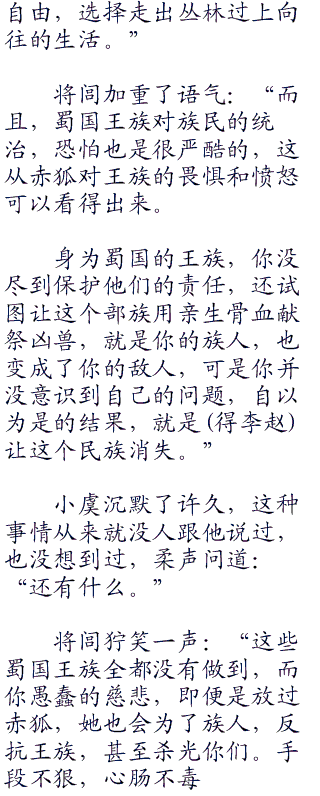 自由，选择走出丛林过上向
往的生活。”
将闾加重了语气：“而
且，蜀国王族对族民的统
治，恐怕也是很严酷的，这
从赤狐对王族的畏惧和愤怒
可以看得出来。
身为蜀国的王族，你没
尽到保护他们的责任，还试
图让这个部族用亲生骨血献
祭凶兽，就是你的族人，也
变成了你的敌人，可是你并
没意识到自己的问题，自以
为是的结果，就是(得李赵)
让这个民族消失。”
小虞沉默了许久，这种
事情从来就没人跟他说过，
也没想到过，柔声问道：
“还有什么。”
将闾狞笑一声：“这些
蜀国王族全都没有做到，而
你愚蠢的慈悲，即便是放过
赤狐，她也会为了族人，反
抗王族，甚至杀光你们。手
段不狠，心肠不毒